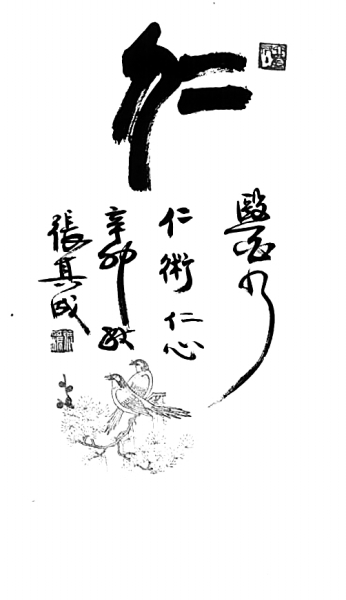 仁
醫乃
仁術仁心
辛卯
張其成